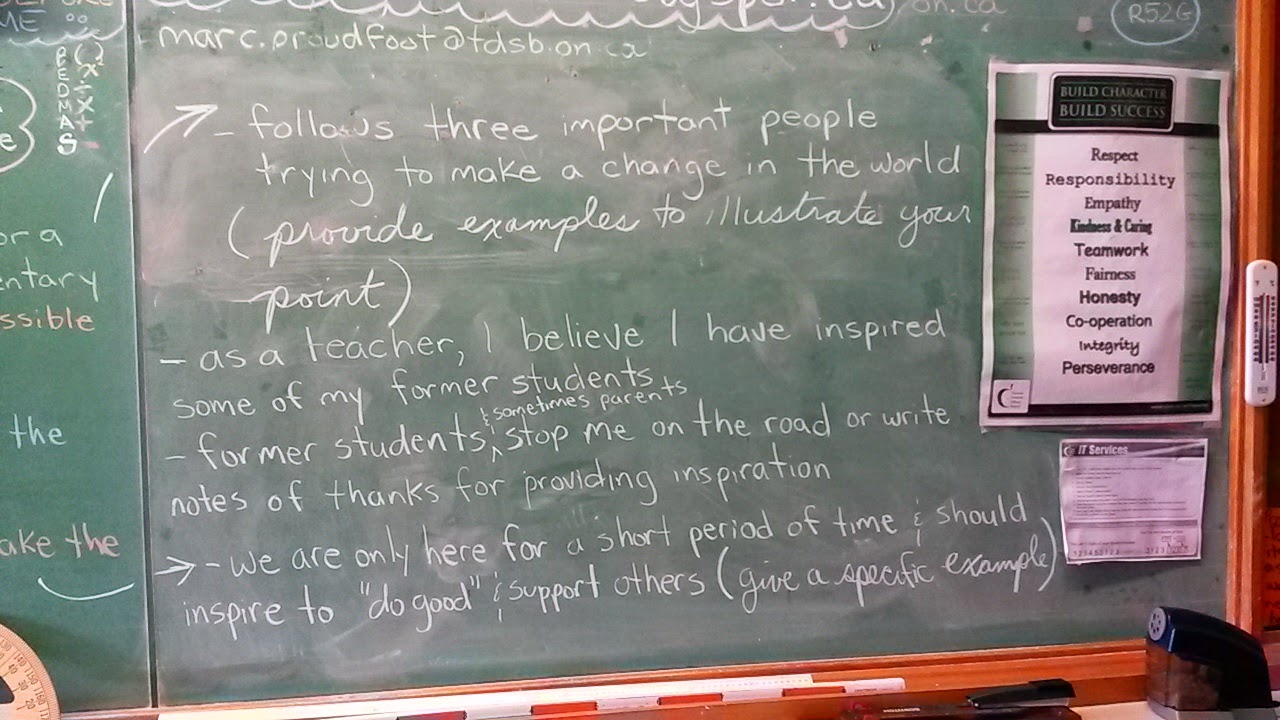 ME
B
E
D
M
A
S
e
or a
entary
ssible
the
ake the
on.ca
R52G
marc.proudfoot@tdsb.on.ca
- follows three important people
trying to make a change in the world
(provide examples to illustrate your
point)
- as a teacher, I believe I have inspired
some of my former students
& sometimes parents
- former students, stop me on the road or write
notes of thanks for providing inspiration
→ - we are only here for a short period of time & should
inspire to "do good" & support others (give a specific example)
BUILD CHARACTER
BUILD SUCCESS
Respect
Responsibility
Empathy
Kindness & Caring
Teamwork
Fairness
Honesty
Co-operation
Integrity
Perseverance
IT Services